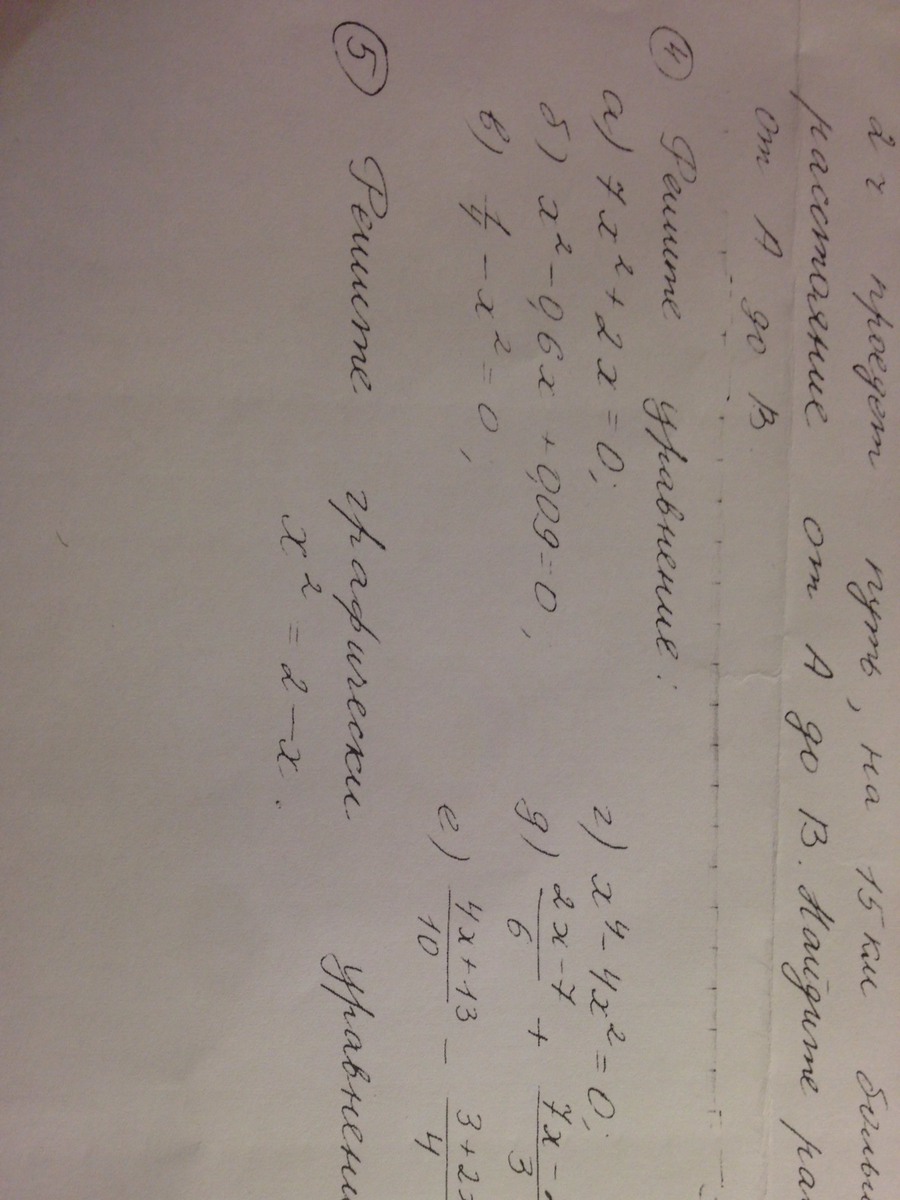 2 ч проедет путь, на 15 км
расстояние от А до В. Найдите
от А до В
④ Решите уравнение:
а) 7x² + 2x = 0;
б) x² - 0,6x + 0,09 = 0,
в) 1/4 - x² = 0,
г) x⁴ - 4x² = 0;
д) (2x-7)/6 + (7x-)/3
е) (4x+13)/10 - (3+2)/4
⑤ Решите графически уравнени
x² = 2 - x.